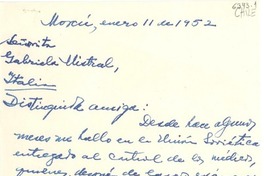 Moscú, enero 11 de 1952
Señorita
Gabriela Mistral,
Italia
Distinguida amiga:
Desde hace algunos
meses me hallo en la Unión Soviética
entregado al cuidado de los médicos,
quienes, después de